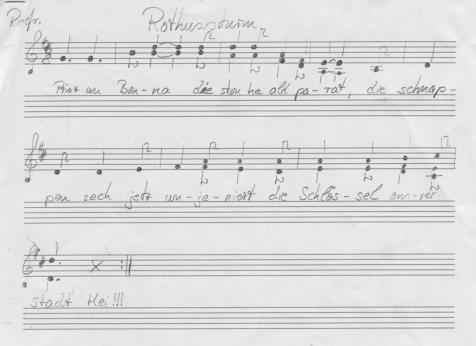 Refr.
Rothussturm
Prinz un Bon-na die ston he all pa-rat, die schnap-
pen sech jetz un-je-niert die Schlös-sel onn-rer
stadt Hei!!!